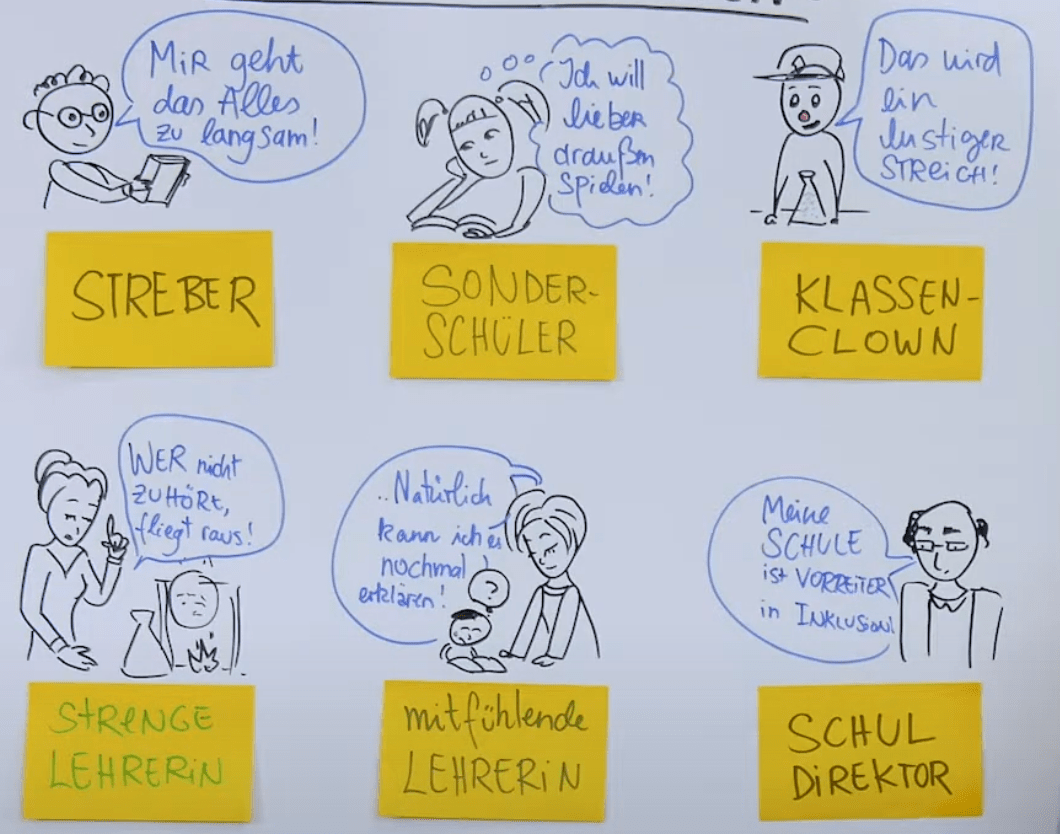 MiR geht
das Alles
zu langsam!
Ich will
lieber
draußen
spielen!
Das wird
ein
lustiger
STREiCH!
STREBER
SONDER-
SCHÜLER
KLASSEN-
CLOWN
WER nicht
ZUHÖRt,
fliegt raus!
..Natürlich
kann ich es
nochmal
erklären!
?
Meine
SCHULE
ist VORREiTER
in INKLUSION!
StRENGE
LEHRERiN
mitfühlende
LEHRERiN
SCHUL
DiREKTOR